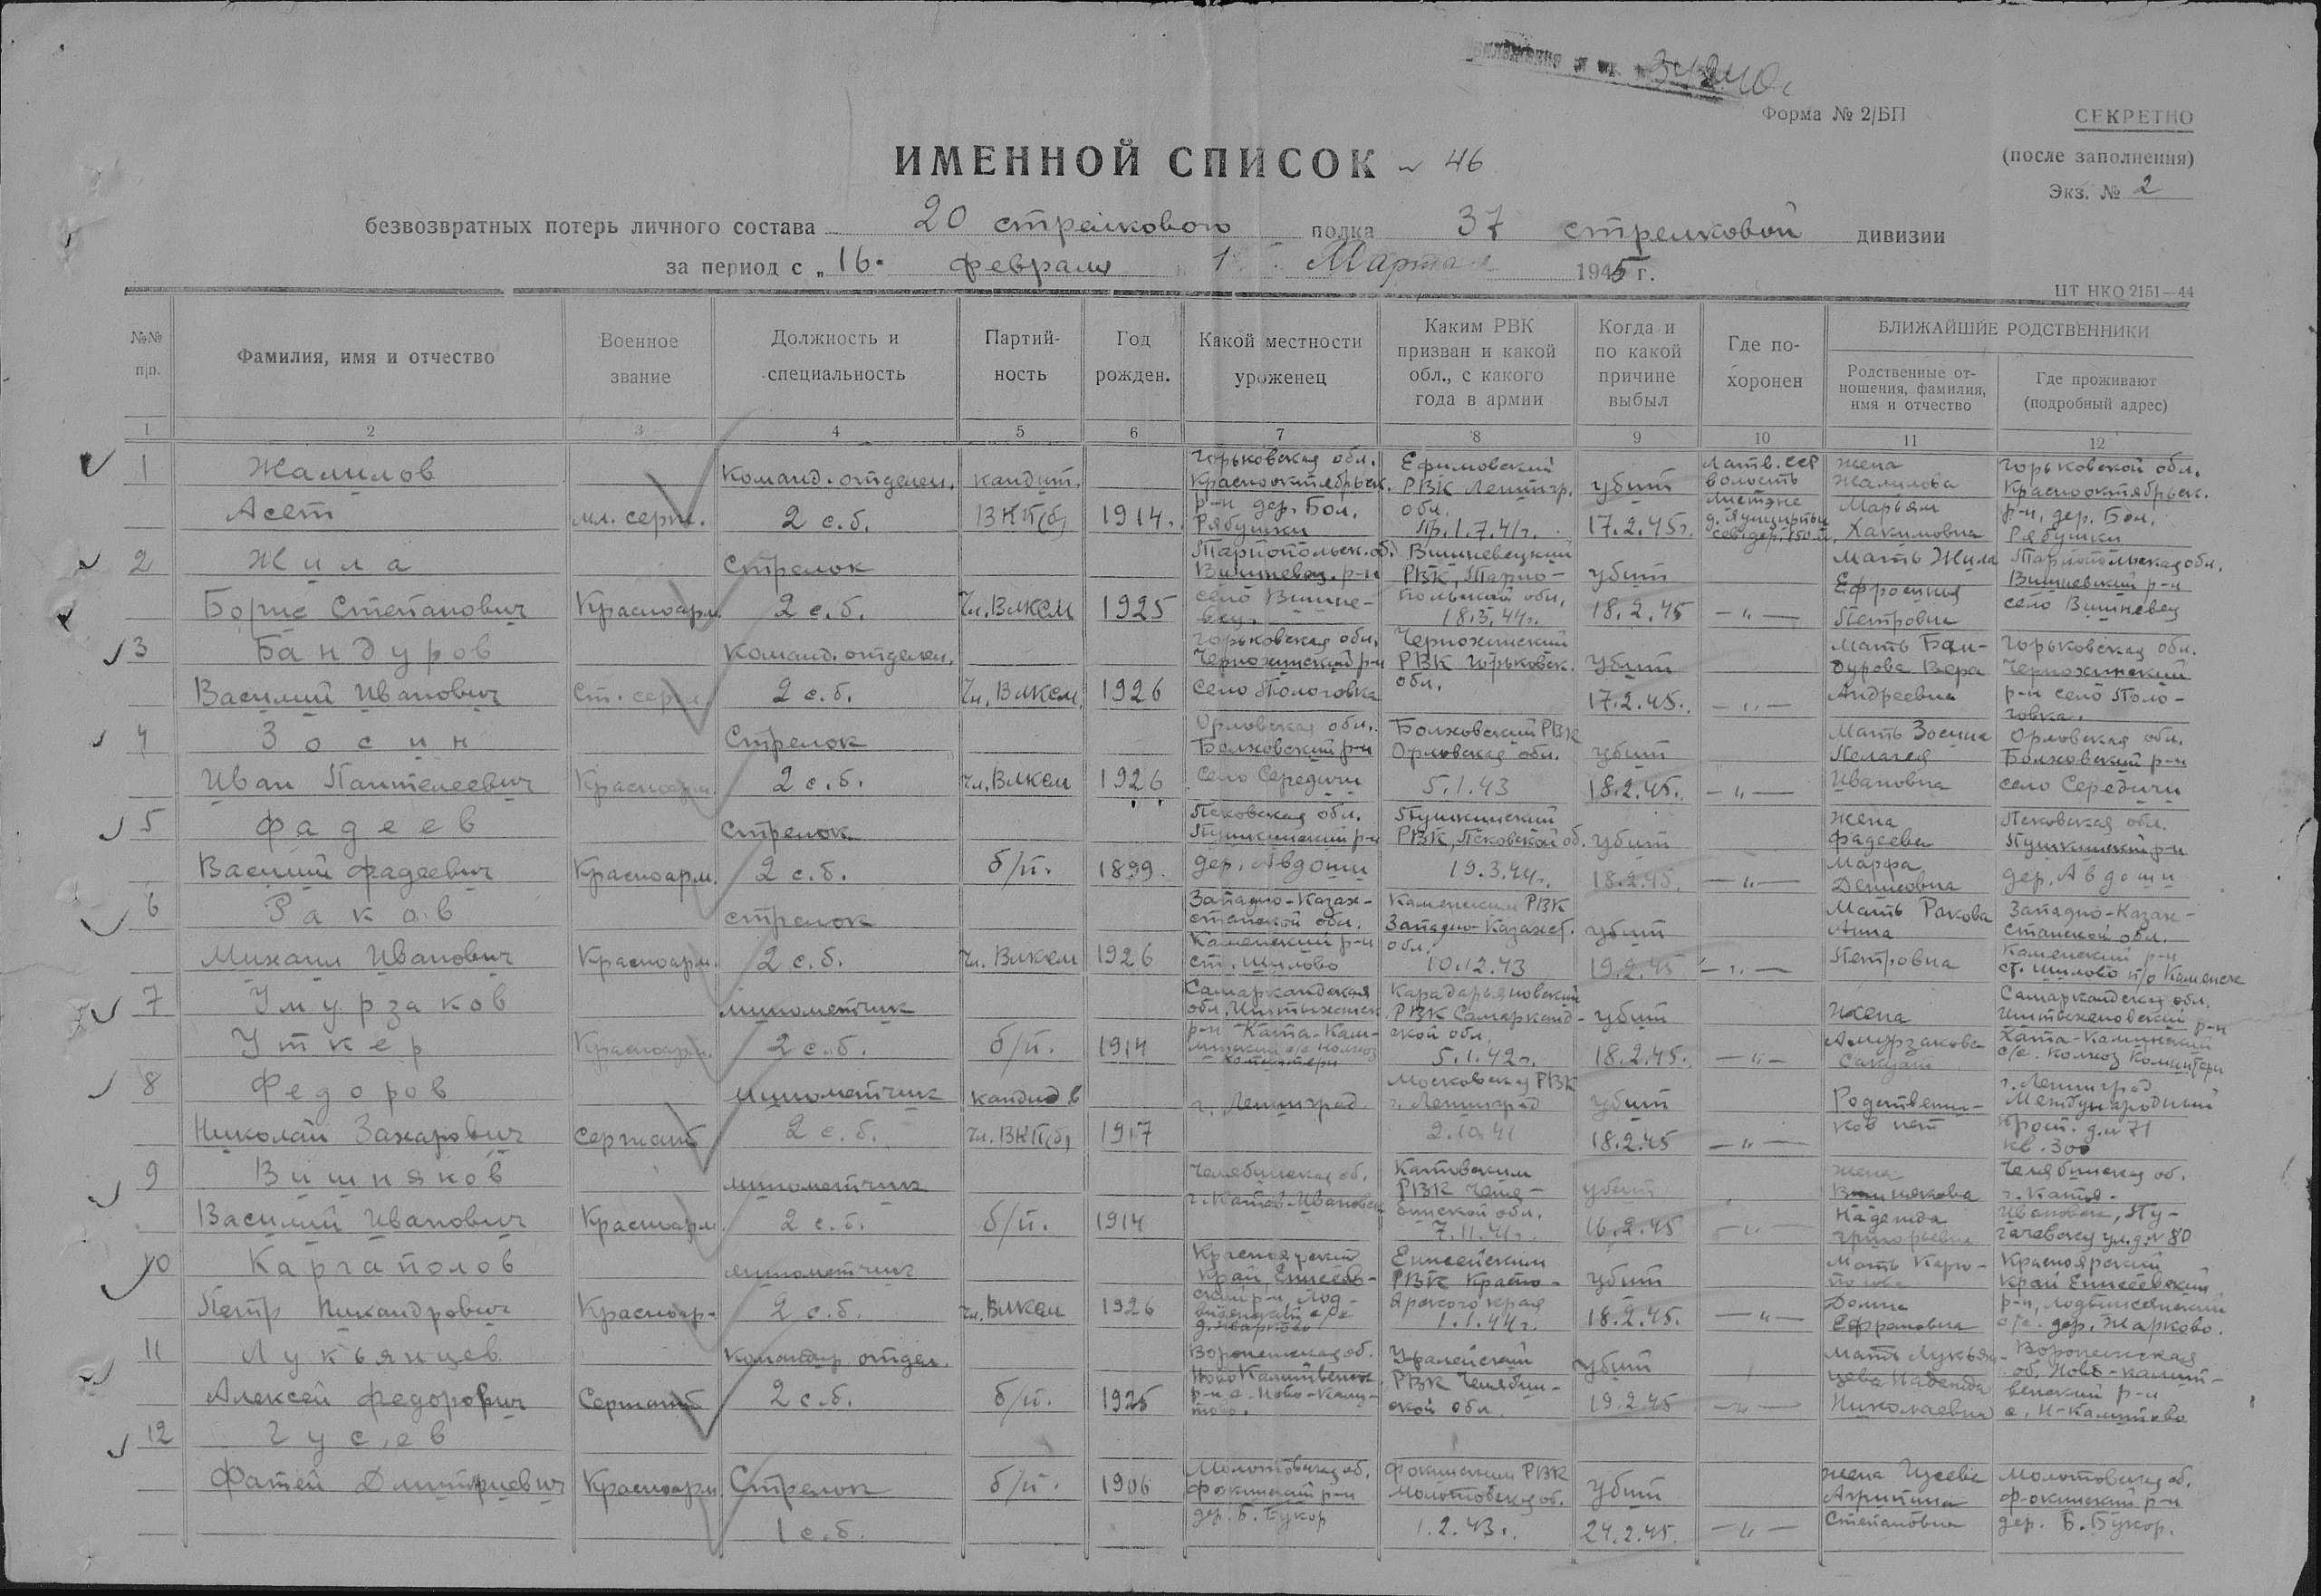 Форма № 2/БП
СЕКРЕТНО
(после заполнения)
Экз. № 2
ИМЕННОЙ СПИСОК № 46
безвозвратных потерь личного состава 20 стрелкового полка 37 стрелковой дивизии
за период с „16" февраля 1 Марта 1945 г.
ЦТ НКО 2151—44
№№ п|п.
Фамилия, имя и отчество
Военное звание
Должность и специальность
Партий-ность
Год рожден.
Какой местности уроженец
Каким РВК призван и какой обл., с какого года в армии
Когда и по какой причине выбыл
Где по-хоронен
БЛИЖАЙШИЕ РОДСТВЕННИКИ
Родственные от-ношения, фамилия, имя и отчество
Где проживают (подробный адрес)
1 2 3 4 5 6 7 8 9 10 11 12
1 Жалилов Асет мл. серж. Команд. отделен. 2 с.б. кандит. ВКП(б) 1914. Горьковская обл. Краснооктябрьск. р-н дер. Бол. Рябушки Ефимовский РВК Ленингр. обл. Пр. 1.7.41г. убит 17.2.45г. Латв. ССР волость жена Жалилова Марьям Хакимовна Горьковской обл. Краснооктябрьск. р-н, дер. Бол. Рябушки
2 Жила Борис Степанович Красноарм. Стрелок 2 с.б. Чл. ВЛКСМ 1925 Тарнопольск. об. Вишневец. р-н село Вишне- Вишневецкий РВК, Тарно-польской обл. 18.3.44г. убит 18.2.45 —„— Мать Жила Ефросинья Петровна Тарнопольская обл. Вишневский р-н село Вишневец
3 Бандуров Василий Иванович Ст. серж. Команд. отделен. 2 с.б. Чл. ВЛКСМ 1926 Горьковская обл. Чернохинский р-н село Пологовка Чернохинский РВК Горьковск. обл. убит 17.2.45. —„— Мать Бан-дурова Вера Андреевна Горьковская обл. Чернохинский р-н село Поло-говка.
4 Зосин Иван Пантелеевич Красноарм Стрелок 2 с.б. Чл. ВЛКСМ 1926 Орловская обл. Болховский р-н село Середичи Болховский РВК Орловская обл. 5.1.43 убит 18.2.45. —„— Мать Зосина Пелагея Ивановна Орловская обл. Болховский р-н село Середичи
5 Фадеев Василий Фадеевич Красноарм. Стрелок 2 с.б. б/п. 1899. Псковская обл. Пушкинский р-н дер. Авдоши Пушкинский РВК, Псковской об. 19.3.44г. убит 18.2.45. —„— жена Фадеева Марфа Денисовна Псковская обл. Пушкинский р-н дер. Авдоши
6 Раков Михаил Иванович Красноарм. стрелок 2 с.б. Чл. ВЛКСМ 1926 Западно-Казах-станской обл. Каменский р-н ст. Шилово Каменским РВК Западно-Казахст. обл. 10.12.43 убит 19.2.45 —„— Мать Ракова Анна Петровна Западно-Казах-станской обл. Каменский р-н ст. Шилово п/о Каменск
7 Умурзаков Уткер Красноарм. минометчик 2 с.б. б/п. 1914 Самаркандская обл. р-н Карадарьяновский РВК Самарканд-ской обл. 5.1.42г. убит 18.2.45. —„— Жена Самаркандская обл. р-н с/с. колхоз Коминтерн
8 Федоров Николай Захарович Сержант минометчик 2 с.б. кандид в Чл. ВКП(б) 1917 г. Ленинград Московским РВК г. Ленинград 2.10.41 убит 18.2.45 —„— Родственни-ков нет г. Ленинград Международный прот. д. № 71 кв. 300
9 Вишняков Василий Иванович Красноарм. минометчик 2 с.б. б/п. 1914 Челябинская об. г. Катав-Ивановск Катавским РВК Челя-бинской обл. 7.11.41г. убит 16.2.45 —„— жена Вишнякова Надежда Григорьевна Челябинская об. г. Катав-Ивановск, Пу-гачевская ул. д. № 80
10 Каргаполов Петр Никандрович Красноар- минометчик 2 с.б. чл. ВЛКСМ 1926 Красноярский край, Енисейским РВК Красно-ярского края 1.1.44г. убит 18.2.45. —„— Мать Домна Красноярский край р-н, с/с. дер. Жарково.
11 Лукьянцев Алексей Федорович Сержант Командир отдел. 2 с.б. б/п. 1925 Воронежская об. Ново Калитвенск. р-н Уфалейский РВК Челябин-ской обл. убит 19.2.45 —„— Мать Лукьян-цева Надежда Николаевна Воронежская об. Ново-Калит-венский р-н с. Н-Калитово
12 Гусев Фатей Дмитриевич Красноарм. Стрелок 1 с.б. б/п. 1906 Молотовская об. Фокинский р-н дер. Б. Букор Фокинским РВК Молотовская об. 1.2.43г. убит 24.2.45. —„— жена Гусева Агрипина Степановна Молотовская об. Фокинский р-н дер. Б. Букор.